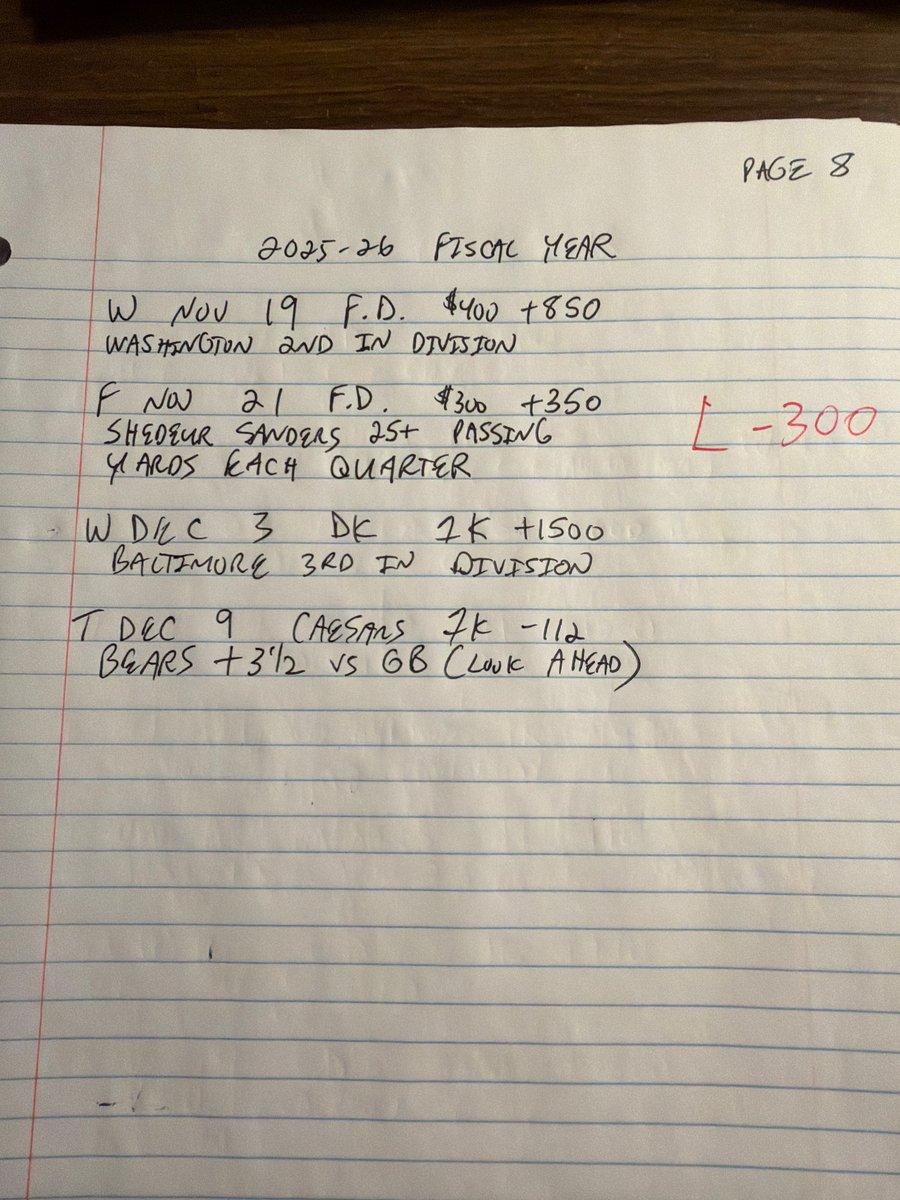 PAGE 8
2025-26 FISCAL YEAR
W NOV 19 F.D. $400 +850
WASHINGTON 2ND IN DIVISION
F NOV 21 F.D. $300 +350
L -300
SHEDEUR SANDERS 25+ PASSING
YARDS EACH QUARTER
W DEC 3 DK 1K +1500
BALTIMORE 3RD IN DIVISION
T DEC 9 CAESARS 1K -112
BEARS +3 1/2 VS GB (LOOK AHEAD)